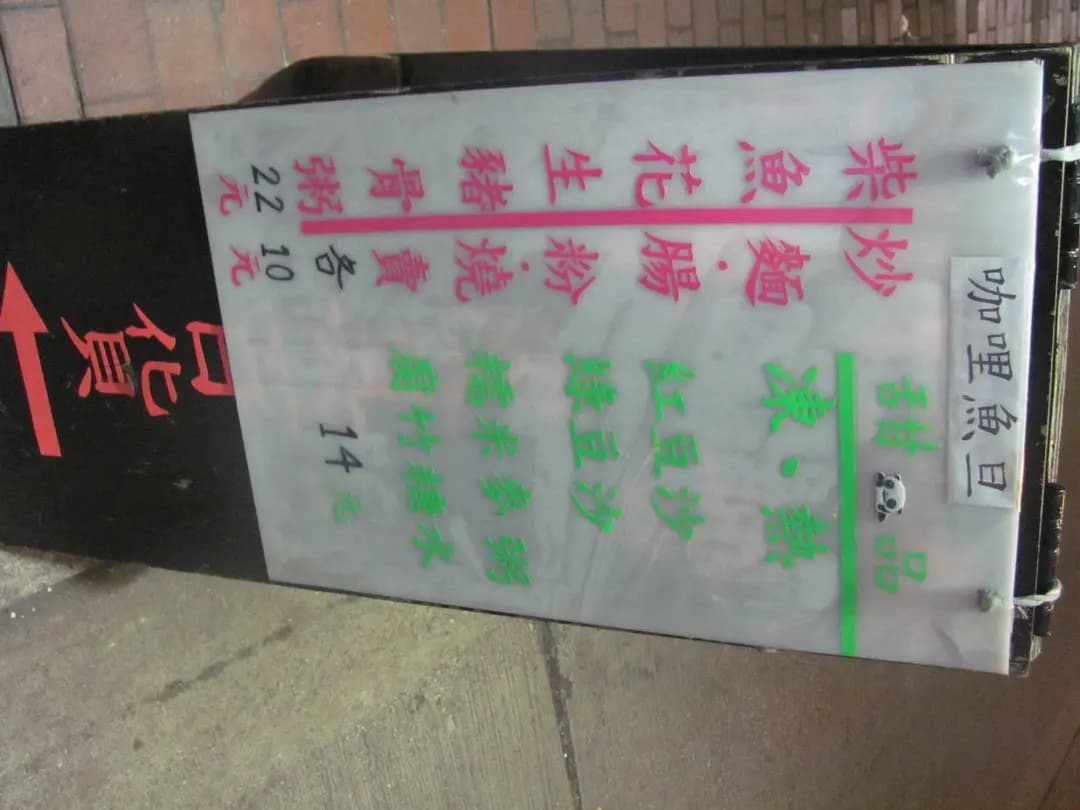 咖哩魚旦
柴魚花生豬骨粥
22元
炒麵·腸粉·燒賣
各10元
甜品
凍·熱
紅豆沙
綠豆沙
糯米麥粥
腐竹糖水
14元
貨